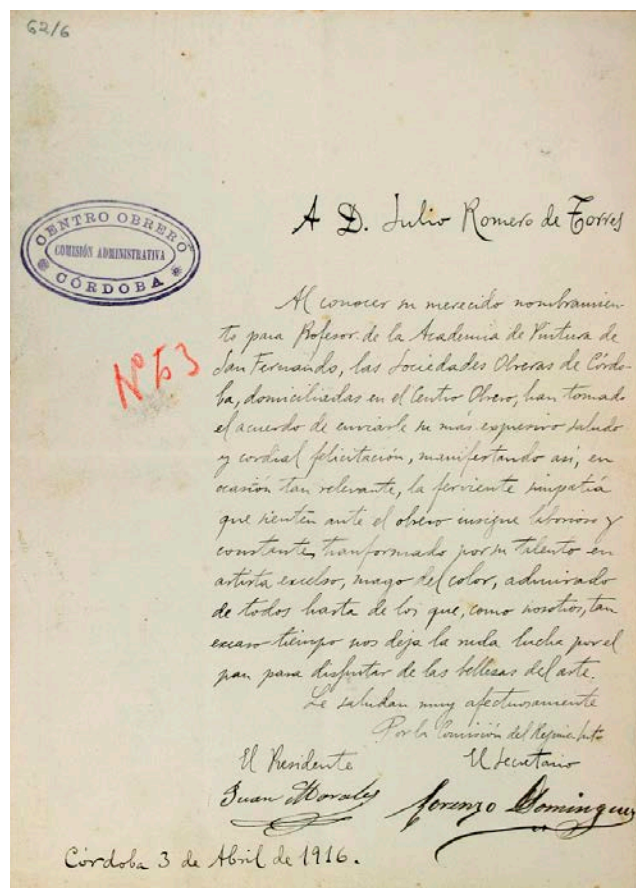 62/6
A D. Julio Romero de Torres
CENTRO OBRERO
COMISIÓN ADMINISTRATIVA
CÓRDOBA
Al conocer su merecido nombramien-
to para Profesor de la Academia de Pintura de
San Fernando, las Sociedades Obreras de Córdo-
ba, domiciliadas en el Centro Obrero, han tomado
el acuerdo de enviarle su más expresivo saludo
y cordial felicitación, manifestando así, en
ocasión tan relevante, la ferviente simpatía
que sienten ante el obrero insigne laborioso y
constante, tranformado por su talento en
artista excelso, mago del color, admirado
de todos hasta de los que, como nosotros, tan
escaso tiempo nos deja la ruda lucha por el
pan para disfrutar de las bellezas del arte.
Le saludan muy afectuosamente
Por la Comisión del
El Presidente El Secretario
Juan Morales Lorenzo Dominguez
Córdoba 3 de Abril de 1916.